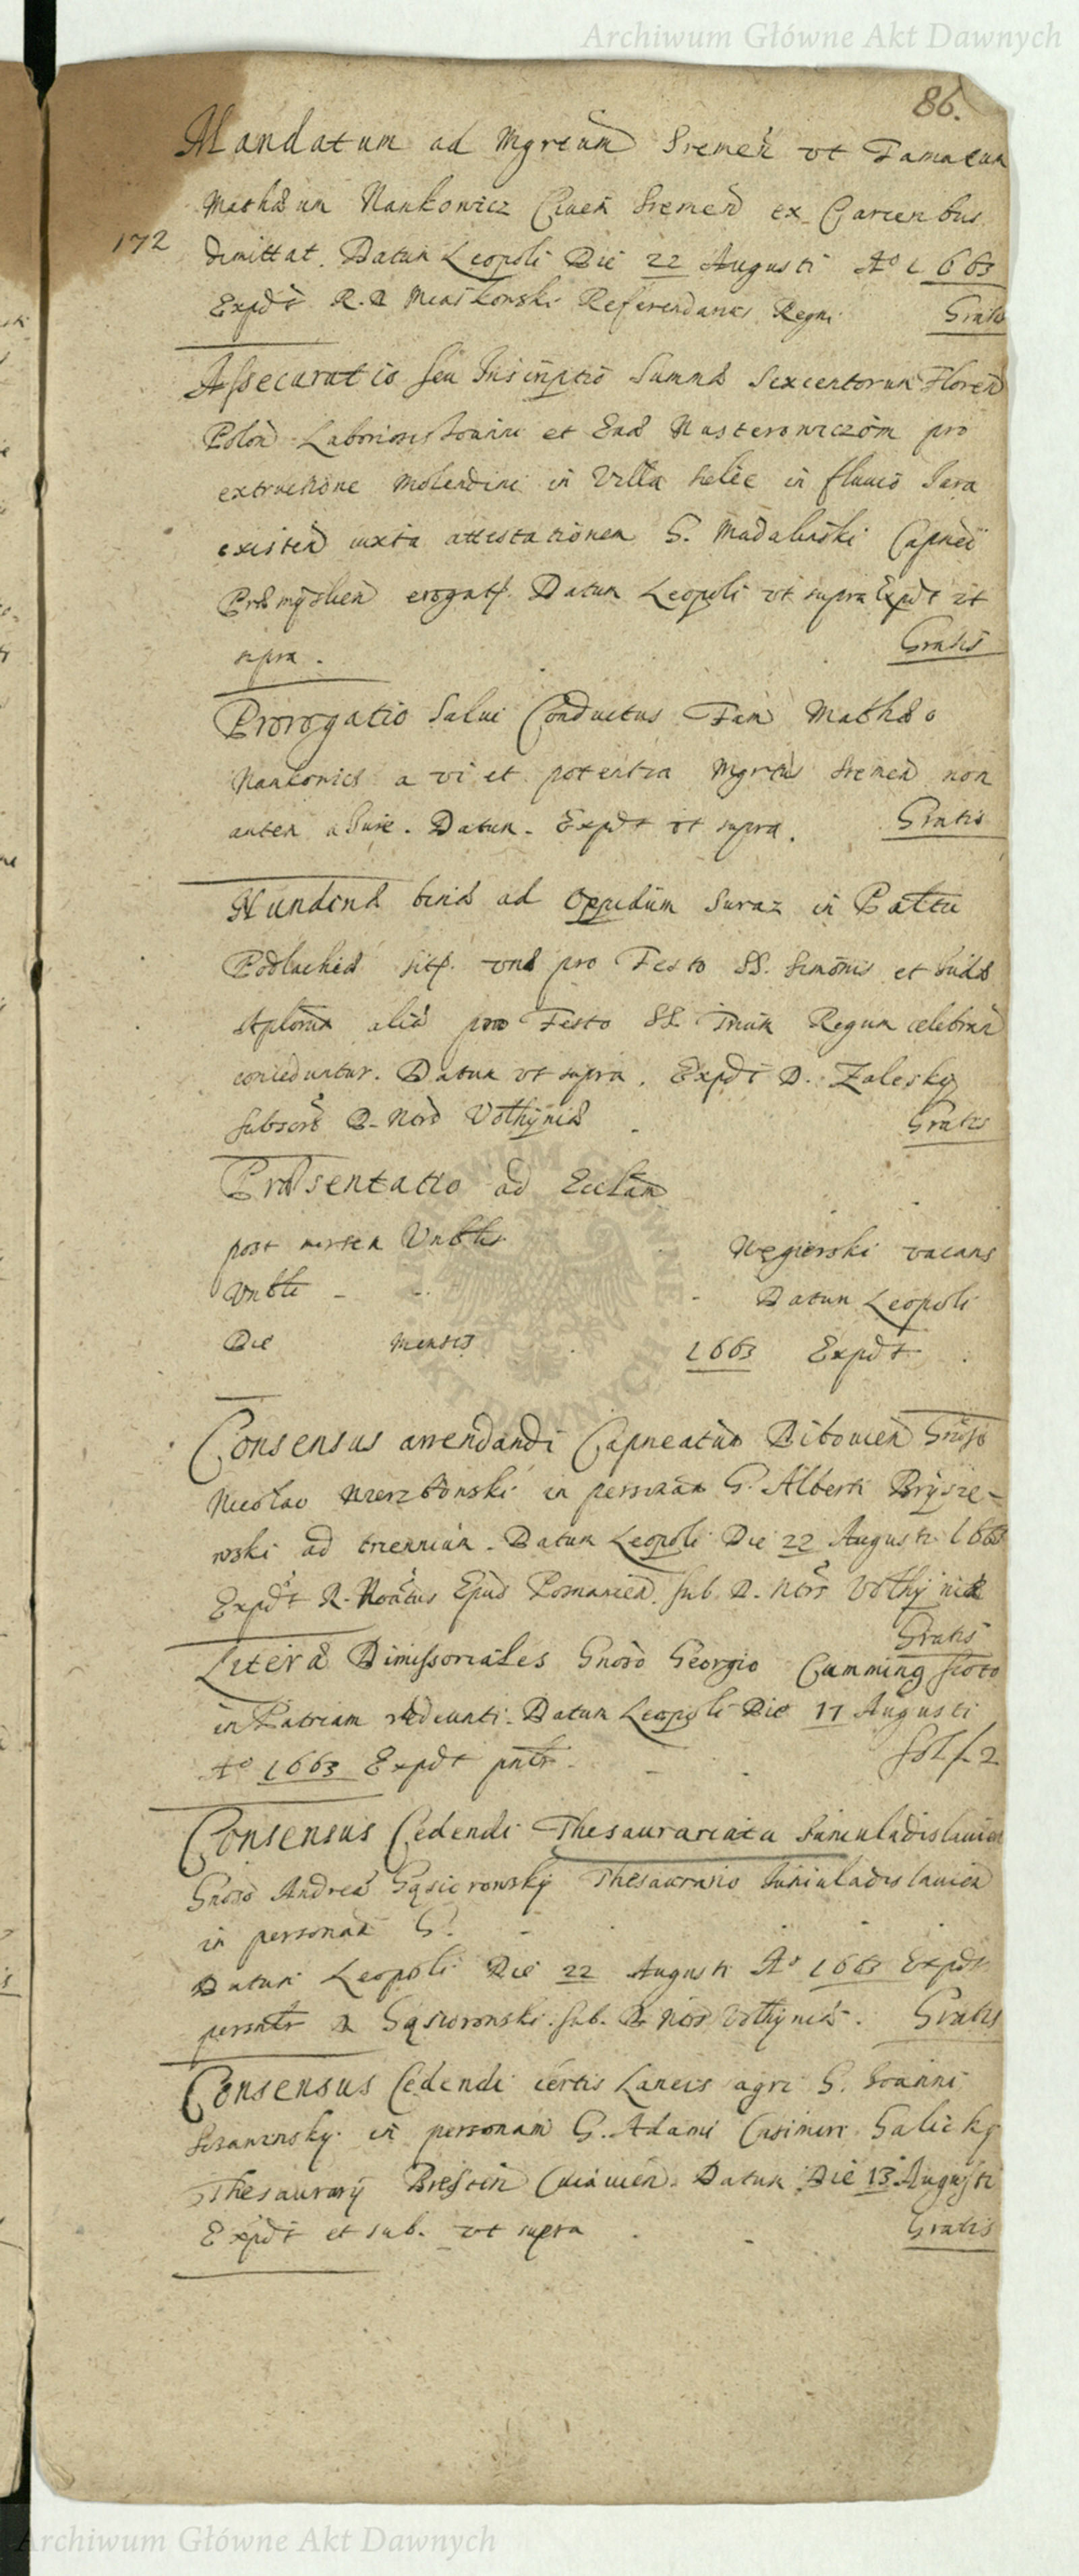 Archiwum Główne Akt Dawnych
86.
Mandatum ad Mgrtum Sremen vt Famatum
Mathæum Nankowicz Ciuen Sremen ex Carcenbus
172
dimittat. Datum Leopoli Die 22 Augusti Aº 1663
Expdt R. D Miaskowski Referendarius Regni Gratis
Assecuratio seu Inscriptio Summæ Sexcentorum Floren
Polon Laboriosis Ioanni et Euæ Nasterowiczom pro
extructione Molendini in Villa Helce in fluuio Sara
existen iuxta attestationem G. Madalinski Capnei
Præmyslien erogat. Datum Leopoli vt supra Expdt vt
supra. Gratis
Prorogatio Salui Conductus Fam Mathæo
Nankowics a vi et potentia Mgrtus Sremen non
autem a Iure. Datum. Expdt vt supra. Gratis
Nundinæ binæ ad Oppidum Suraz in Palltu
Podlachiæ sit. vnæ pro Festo SS. Simonis et Iudæ
Aplorum aliæ pro Festo SS. Trium Regum celebran
conceduntur. Datum vt supra. Expdt D. Zalesky
Subscrs D. Nord Volhyniæ Gratis
Præsentatio ad Ecclam
post mortem Vnblis Wegierski vacans
Vnbli - - - Datum Leopoli
Die Mensis 1663 Expdt
Consensus arrendandi Capneatus Bitouien Gnoso
Nicolao Wierzbowski in personam G. Alberti Brysze-
wski ad triennium. Datum Leopoli Die 22 Augusti 1663
Expdt R. Noatus Epus Posnanien. sub D. Ntrs Volhyniæ
Gratis
Literæ Dimissoriales Gnoso Georgio Cumming Scoto
in Patriam redeunti. Datum Leopoli Die 17 Augusti
Aº 1663 Expdt pntr. - - Sol f. 2
Consensus Cedendi Thesaurariatu Iuniuladislauien
Gnoso Andreæ Gąsierowsky Thesaurario Iuniuladislauien
in personam G. -
Datum Leopoli Die 22 Augusti Aº 1663 Expdt
personlr D Gąsiorowski. sub. D. Nors Volhyniæ. Gratis
Consensus Cedendi certis Laneis agri G. Ioanni
in personam G. Adami Casimiri Galicky
Thesaurarij Brestin Cuiauien. Datum Die 13 Augusti
Expdt et sub. vt supra - - Gratis
Archiwum Główne Akt Dawnych